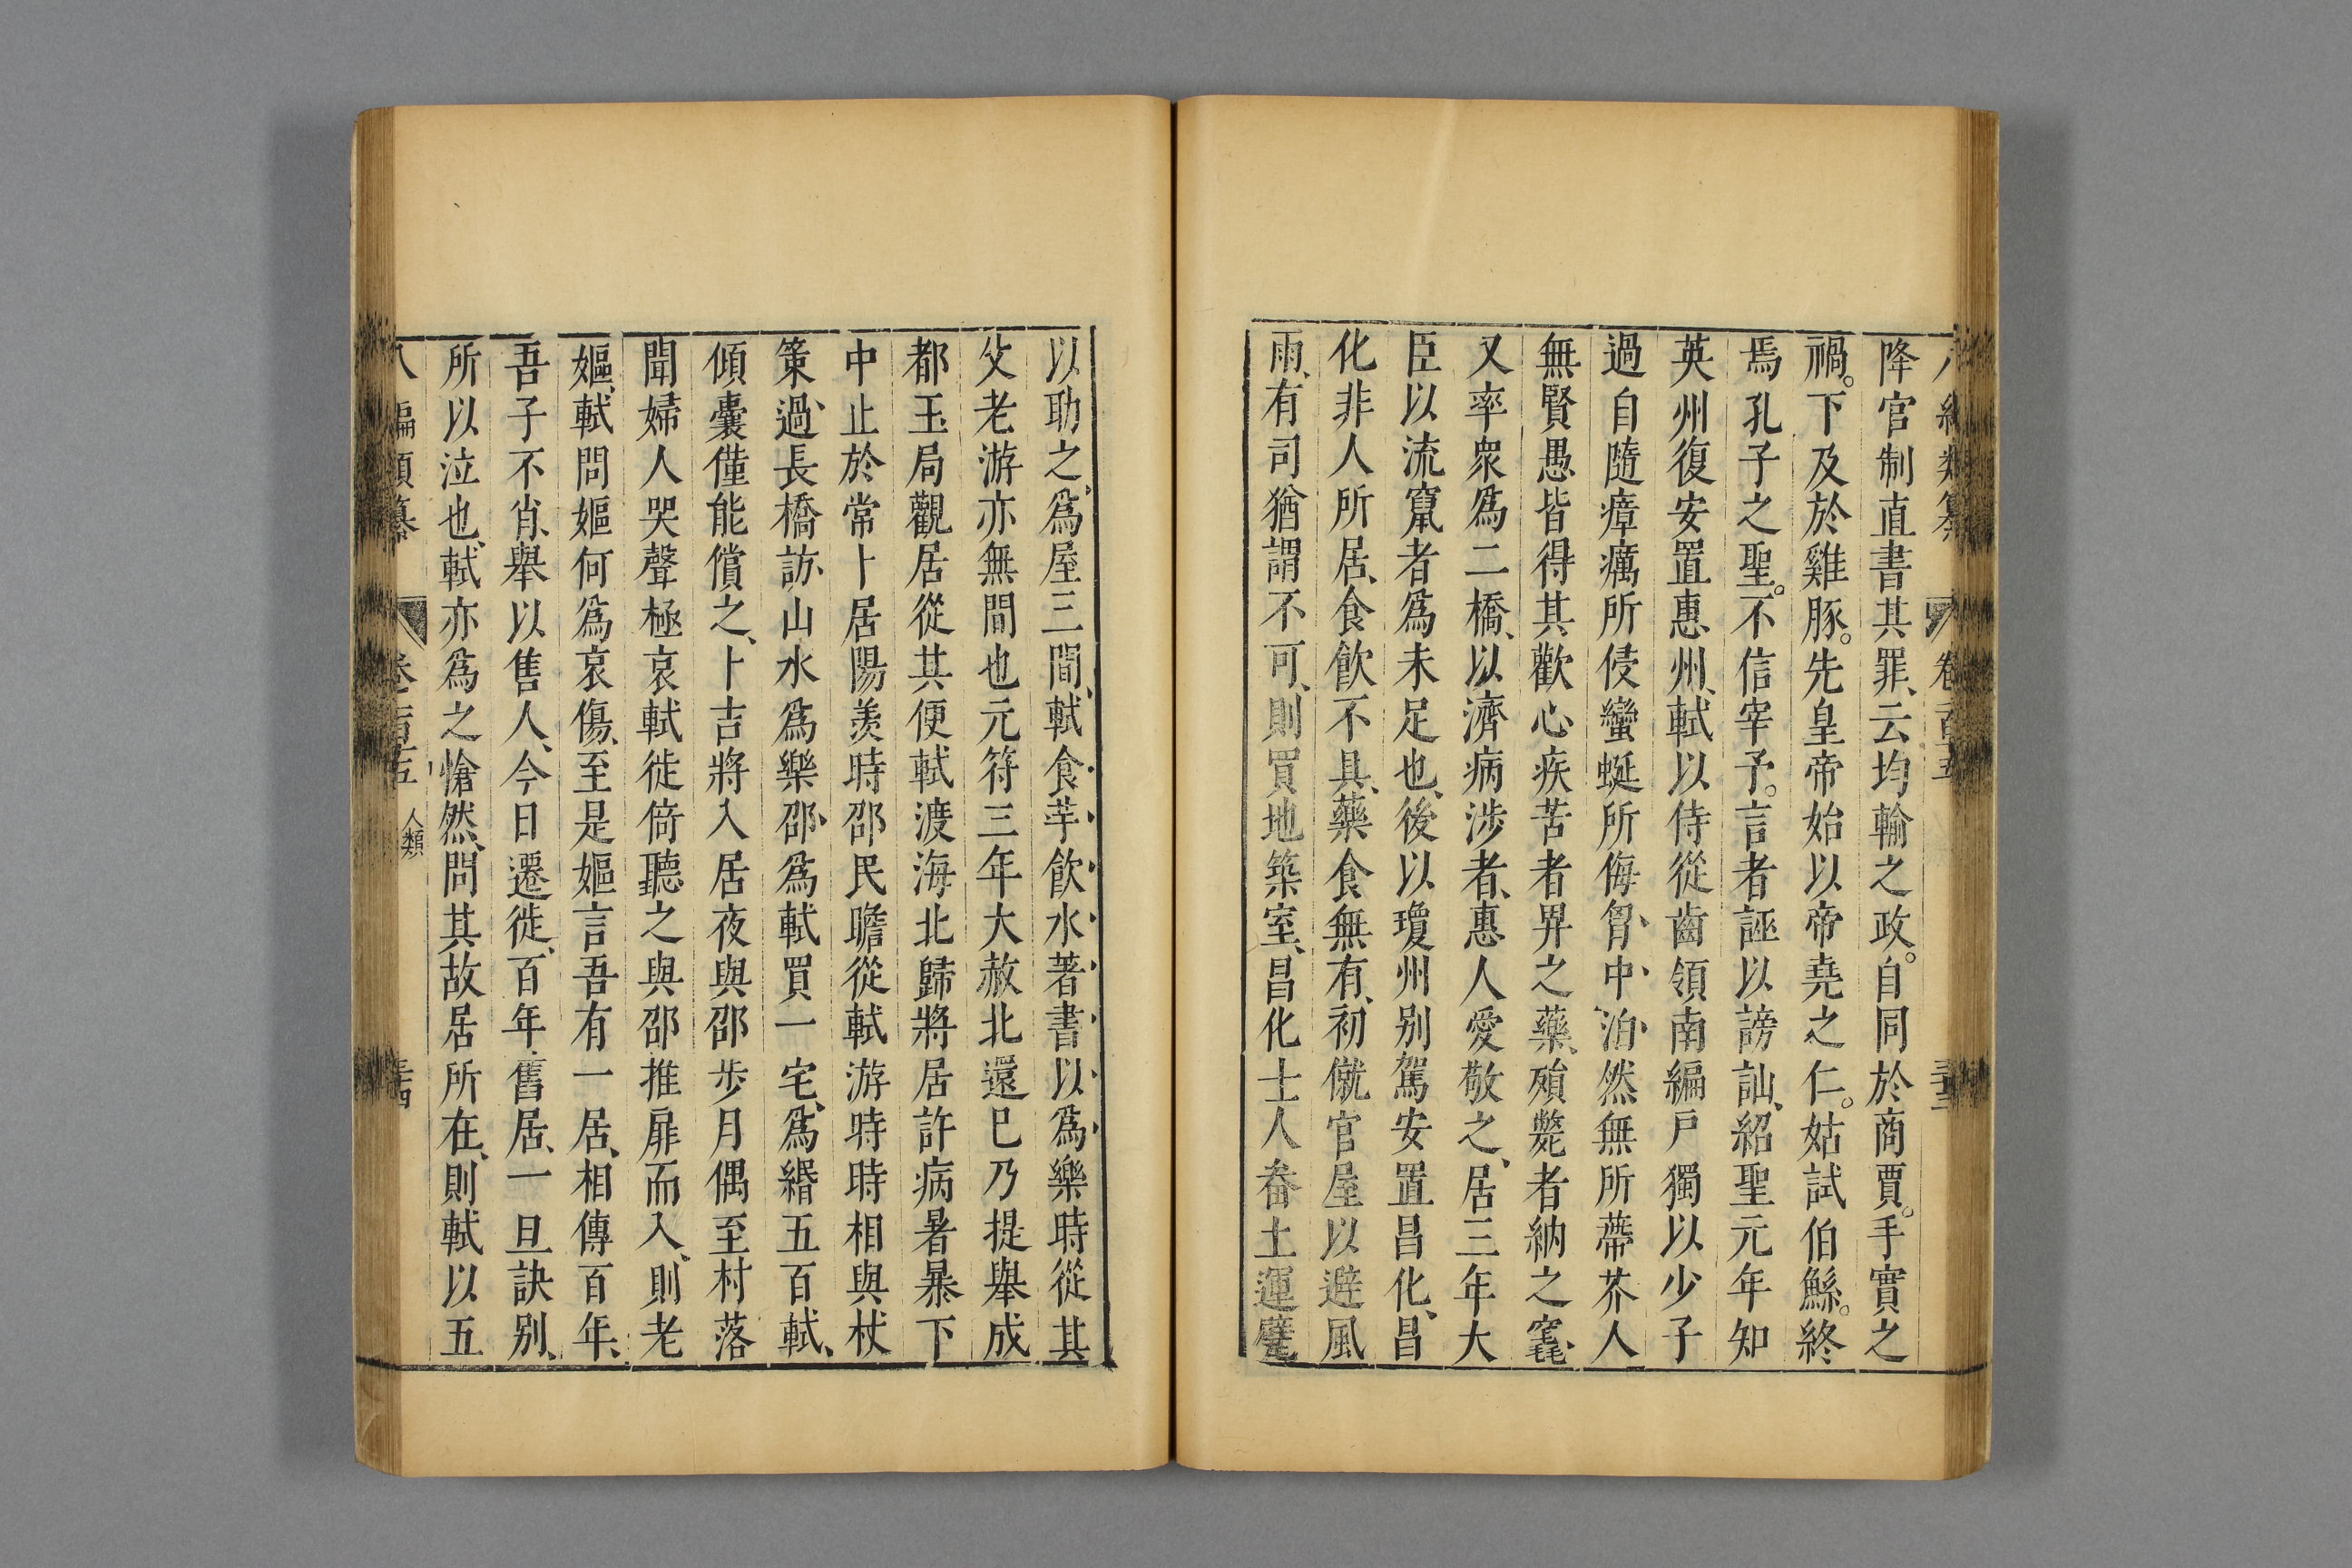 降官制直書其罪、云均輸之政。自同於商賈。手實之
禍。下及於雞豚。先皇帝始以帝堯之仁。姑試伯鯀。終
焉孔子之聖。不信宰予。言者誣以謗訕、紹聖元年知
英州復安置惠州、軾以侍從齒領南編戶獨以少子
過自隨瘴癘所侵蠻蜒所侮胷中泊然無所蔕芥人
無賢愚皆得其歡心疾苦者畀之藥、殞斃者納之窀、
又率衆爲二橋、以濟病涉者、惠人愛敬之、居三年大
臣以流竄者爲未足也、後以瓊州别駕安置昌化、昌
化非人所居、食飲不具、藥食無有、初僦官屋以避風
雨、有司猶謂不可、則買地築室、昌化士人畚土運甓
以助之、爲屋三間、軾食芋飲水著書以爲樂時從其
父老游亦無間也元符三年大赦北還巳乃提舉成
都玉局觀居從其便軾渡海北歸將居許病暑暴下
中止於常卜居陽羨時邵民瞻從軾游時時相與杖
策、過長橋訪山水爲樂邵爲軾買一宅、爲緡五百軾、
傾囊僅能償之、卜吉將入居夜與邵步月偶至村落
聞婦人哭聲極哀軾徙倚聽之與邵推扉而入、則老
嫗、軾問嫗何爲哀傷、至是嫗言吾有一居、相傳百年、
吾子不肖、舉以售人、今日遷徙、百年舊居、一旦訣别、
所以泣也、軾亦爲之愴然、問其故居所在、則軾以五
人類